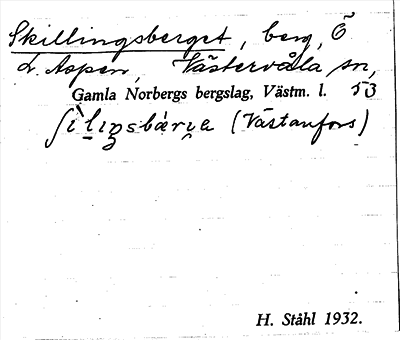 Skillingsberget, berg, Ö
L. Aspen, Västervåla sn,
Gamla Norbergs bergslag, Västm. l. 53
(Västanfors)
H. Ståhl 1932.